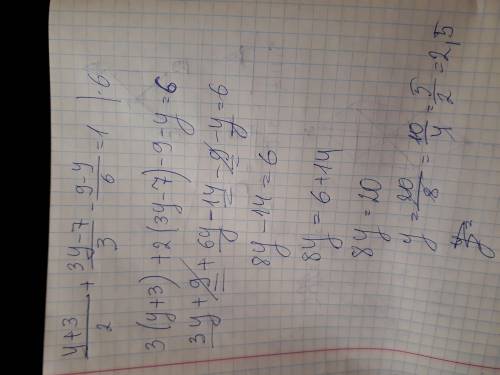 y+3/2 + 3y-7/3 - 9-y/6 = 1 | ·6
3(y+3) + 2(3y-7) - 9 - y = 6
3y + 9 + 6y - 14 - 9 - y = 6
8y - 14 = 6
8y = 6 + 14
8y = 20
y = 20/8 = 10/4 = 5/2 = 2,5